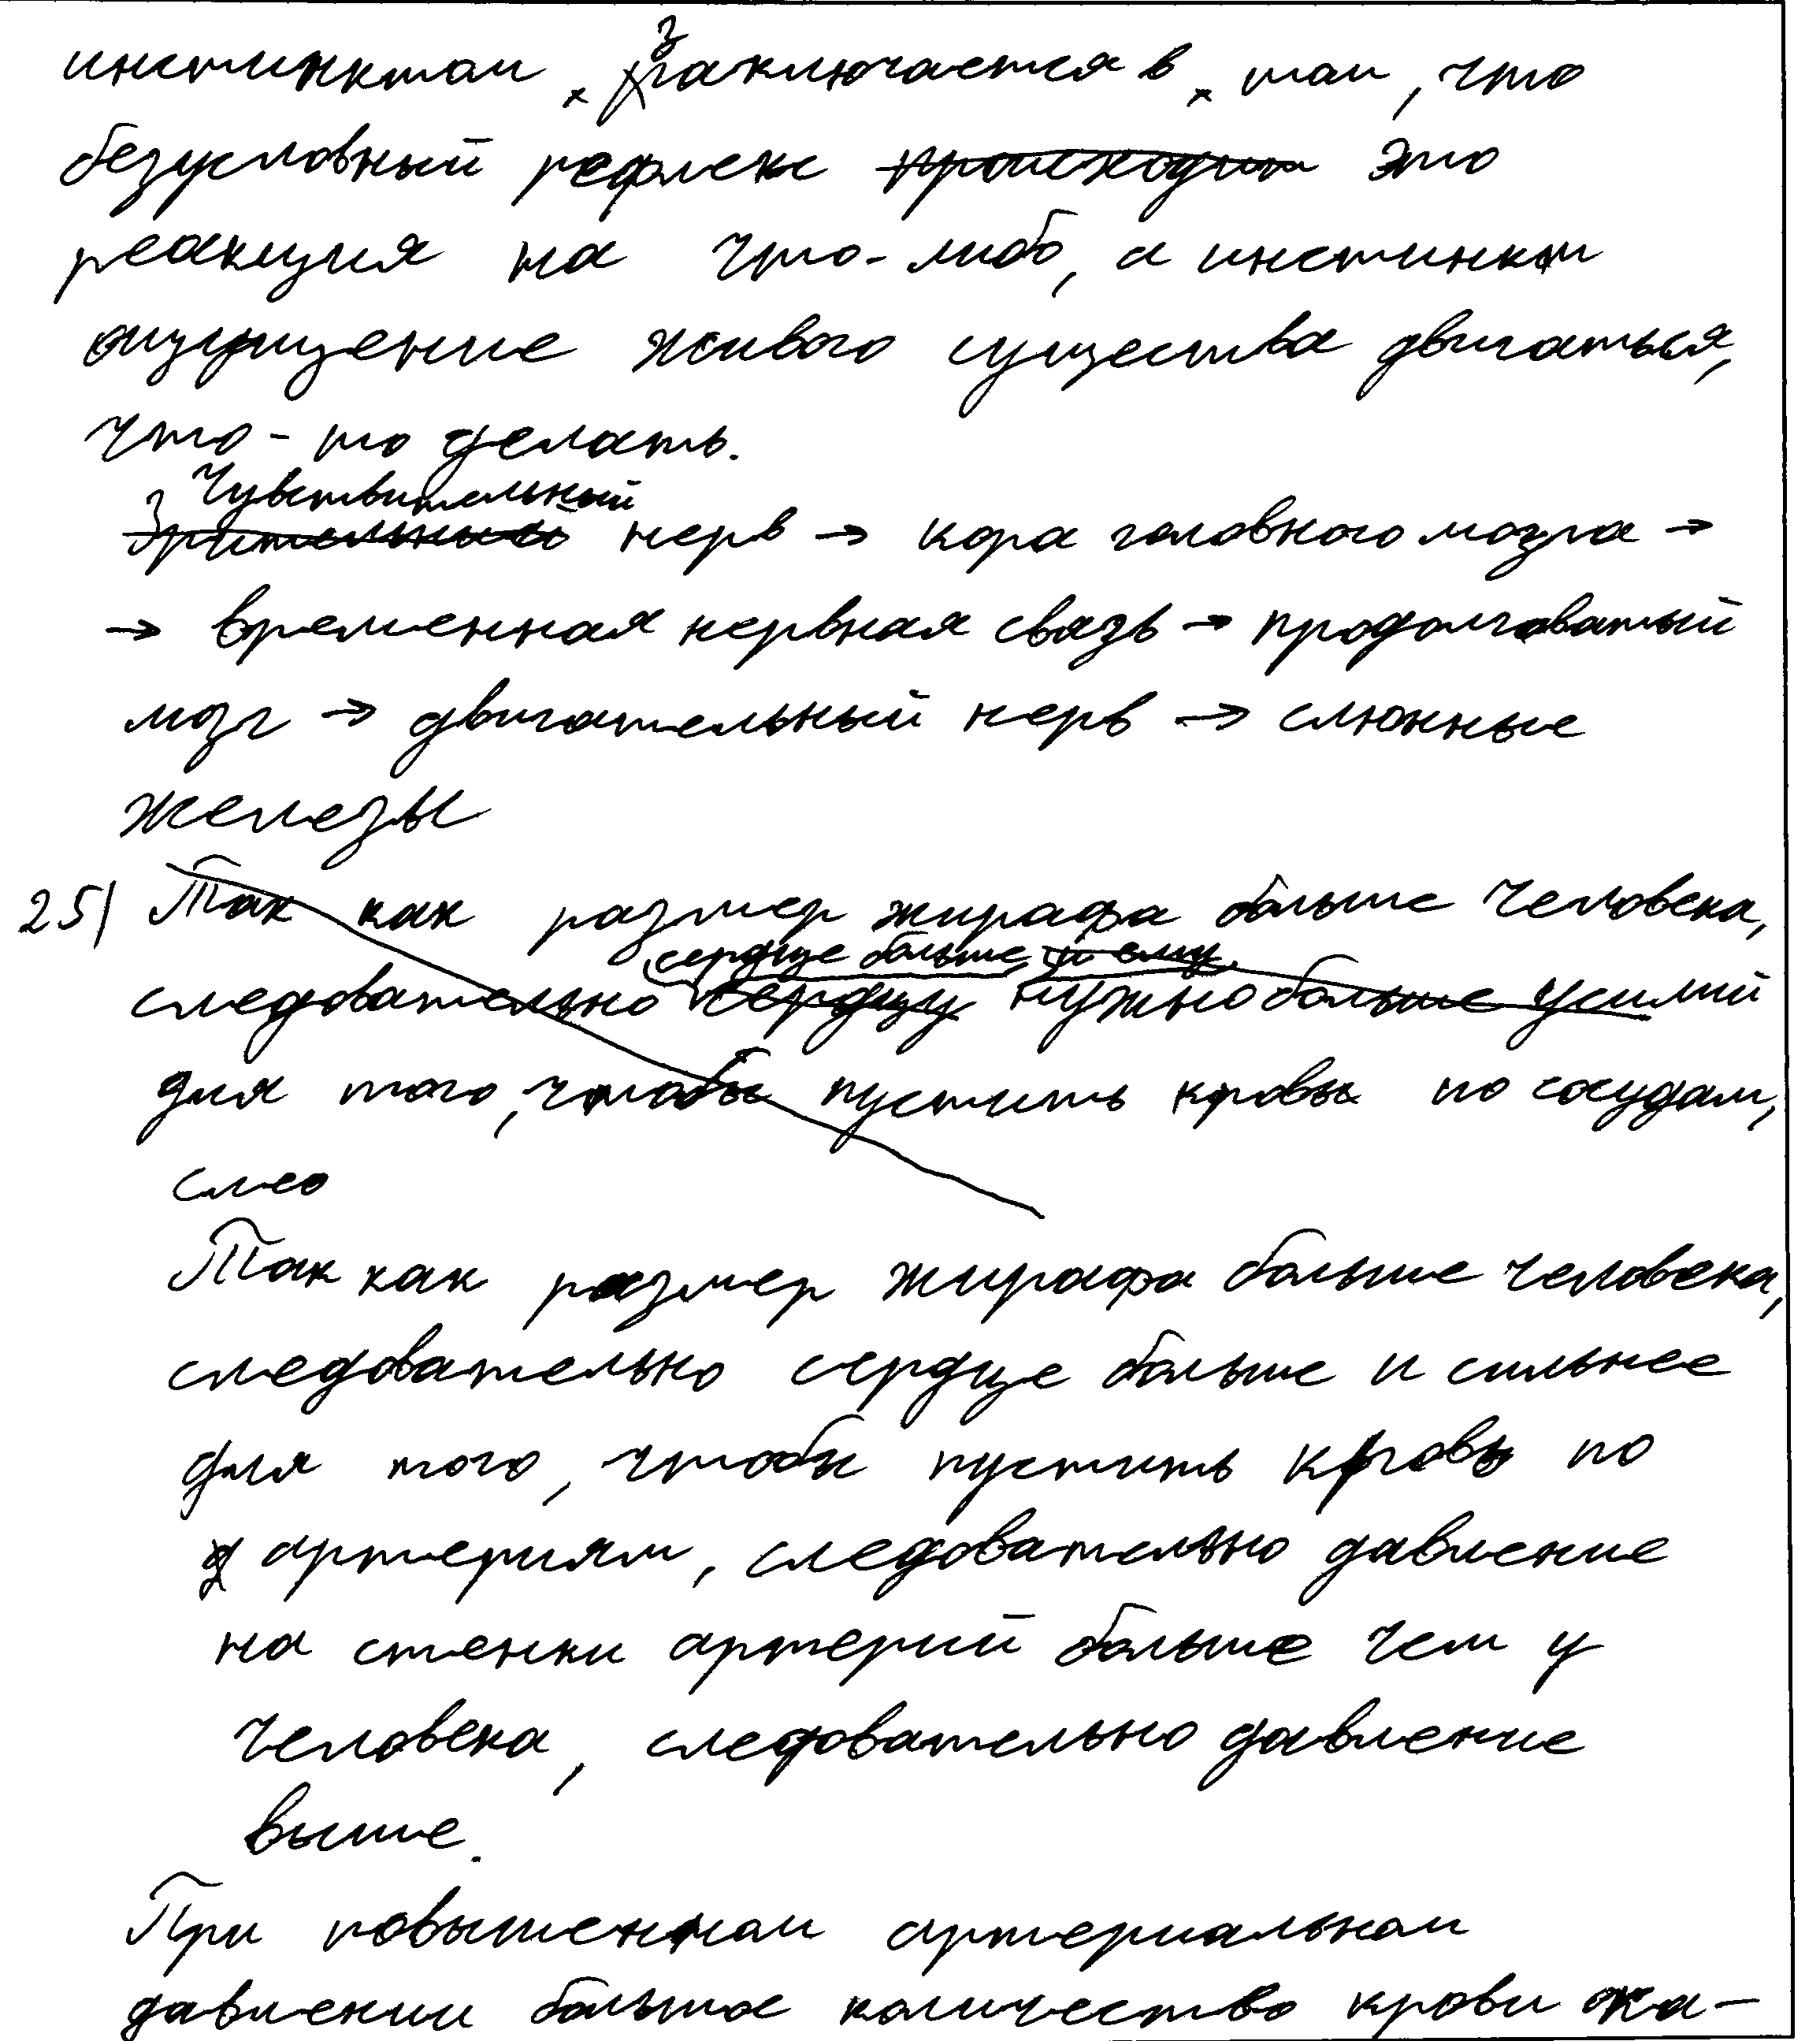 инстинктом заключается в том, что
безусловный рефлекс происходит это
реакция на что-либо, а инстинкт
ощущение живого существа двигаться,
что-то делать.
Чувствительный
Зрительный нерв → кора головного мозга →
→ временная нервная связь → продолговатый
мозг → двигательный нерв → слюнные
железы
25) Так как размер жирафа больше человека,
сердце больше, и ему
следовательно сердцу нужно больше усилий
для того, чтобы пустить кровь по сосудам,
слео
Так как размер жирафа больше человека,
следовательно сердце больше и сильнее
для того, чтобы пустить кровь по
артериям, следовательно давление
на стенки артерий больше чем у
человека, следовательно давление
выше.
При повышенном артериальном
давлении больше количество крови ока-